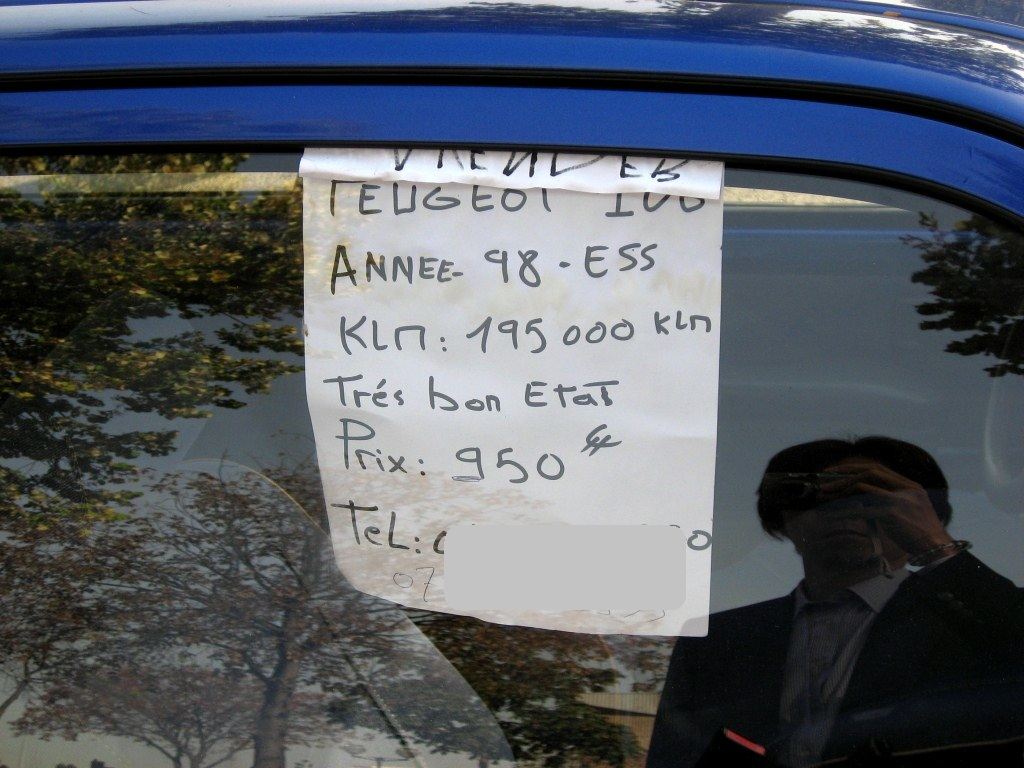 VRENDER
PEUGEOT 106
ANNEE- 98 - ESS
KLM: 195 000 KLM
Trés bon Etat
Prix: 950 €
TeL: 0
07